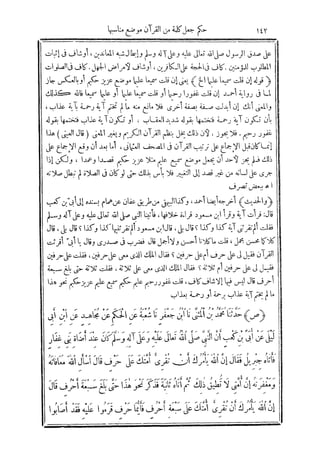 ١٤٢ حكم جعل كلمة من القرآن موضع مناسبها
على صدق الرسول صلى الله تعالى عليه وعلى آله وسلم وإبطال شبه المعاندين ، أوشاف فى إثبات
المطلوب للمؤمنين . كاف فى الحجة على الكافرين ، أوشاف لأمراض الجهل . كاف فى الصلوات
﴿ قوله إن قلت سميعا عليما الخ ﴾ يعنى إن قلت سميعا عليما موضع عزيز حكيم أو بالعكس جاز
لما فى رواية أحمد إن قلت غفورا رحيما أو قلت سميعا عليما أو عليما سميعا فالله كذلك
والمعنى أنك إن أبدلت صفة بصفة أخرى فلا مانع منه ما لم تختم آية رحمة بآية عذاب ،
بأن تكون آية رحمة فتختمها بقوله شديد العقاب ، أو تكون آية عذاب فتختمها بقوله
غفور رحيم . فلا يجوز . لأن ذلك يخل بنظم القرآن الكريم ويغير المعنى ( قال العينى ) هذا
إنما كان قبل الإجماع على ترتيب القرآن فى المصحف العثمانى . أما بعد أن وقع الإجماع على
ذلك فلم يجز لأحد أن يجعل موضع سميع عليم مثلا عزيز حكيم قصدا وعمدا ، ولكن إذا
جرى على لسانه من غير قصد إلى التغيير فلا بأس بذلك حتى لو كان فى الصلاة لم تبطل صلاته
اهـ ببعض تصرف
﴿ والحديث ﴾ أخرجه أيضا أحمد ، وكذا البيهقى من طريق عفان عن همام بسنده إلى أبى بن كعب
قال : قرأت آية وقرأ ابن مسعود قراءة خلافها ، فأتينا النبى صلى الله تعالى عليه وعلى آله وسلم
فقلت ألم تقرئنى آية كذا وكذا ؟ قال بلى ، قال ابن مسعود ألم تقرئنيها كذا وكذا ؟ قال بلى . قال
كلاكما محسن مجمل . قلت ما كلانا أحسن ولا أجمل قال فضرب فى صدرى وقال يا أبىّ أقرئت
القرآن فقيل لى على حرف أم على حرفين ؟ فقال الملك الذى معى على حرفين ، فقلت على حرفين
فقيل لى على حرفين أم ثلاثة ؟ فقال الملك الذى معى على ثلاثة ، فقلت ثلاثة حتى بلغ سبعة
أحرف قال ليس فيها إلا شاف كاف ، قلت غفور رحيم عليم حكيم سميع عليم عزيز حكيم نحو هذا
ما لم يختم آية عذاب برحمة أو رحمة بعذاب
﴿ ص ﴾ حَدَّثَنَا مُحَمَّدُ بْنُ الْمُثَنَّى نَا مُحَمَّدُ بْنُ جَعْفَرٍ نَا شُعْبَةُ عَنِ الْحَكَمِ عَنْ مُجَاهِدٍ عَنِ ابْنِ أَبِى
لَيْلَى عَنْ أُبَىِّ بْنِ كَعْبٍ أَنَّ النَّبِىَّ صَلَّى اللهُ تَعَالَى عَلَيْهِ وَعَلَى آلِهِ وَسَلَّمَ كَانَ عِنْدَ أَضَاةِ بَنِى غِفَارٍ
فَأَتَاهُ جِبْرِيلُ فَقَالَ إِنَّ اللهَ يَأْمُرُكَ أَنْ تُقْرِئَ أُمَّتَكَ عَلَى حَرْفٍ قَالَ أَسْأَلُ اللهَ مُعَافَاتَهُ
وَمَغْفِرَتَهُ إِنَّ أُمَّتِى لَا تُطِيقُ ذَلِكَ ثُمَّ أَتَاهُ ثَانِيَةً فَذَكَرَ نَحْوَ هَذَا حَتَّى بَلَغَ سَبْعَةَ أَحْرُفٍ قَالَ
إِنَّ اللهَ يَأْمُرُكَ أَنْ تُقْرِئَ أُمَّتَكَ عَلَى سَبْعَةِ أَحْرُفٍ فَأَيُّمَا حَرْفٍ قَرَءُوا عَلَيْهِ فَقَدْ أَصَابُوا